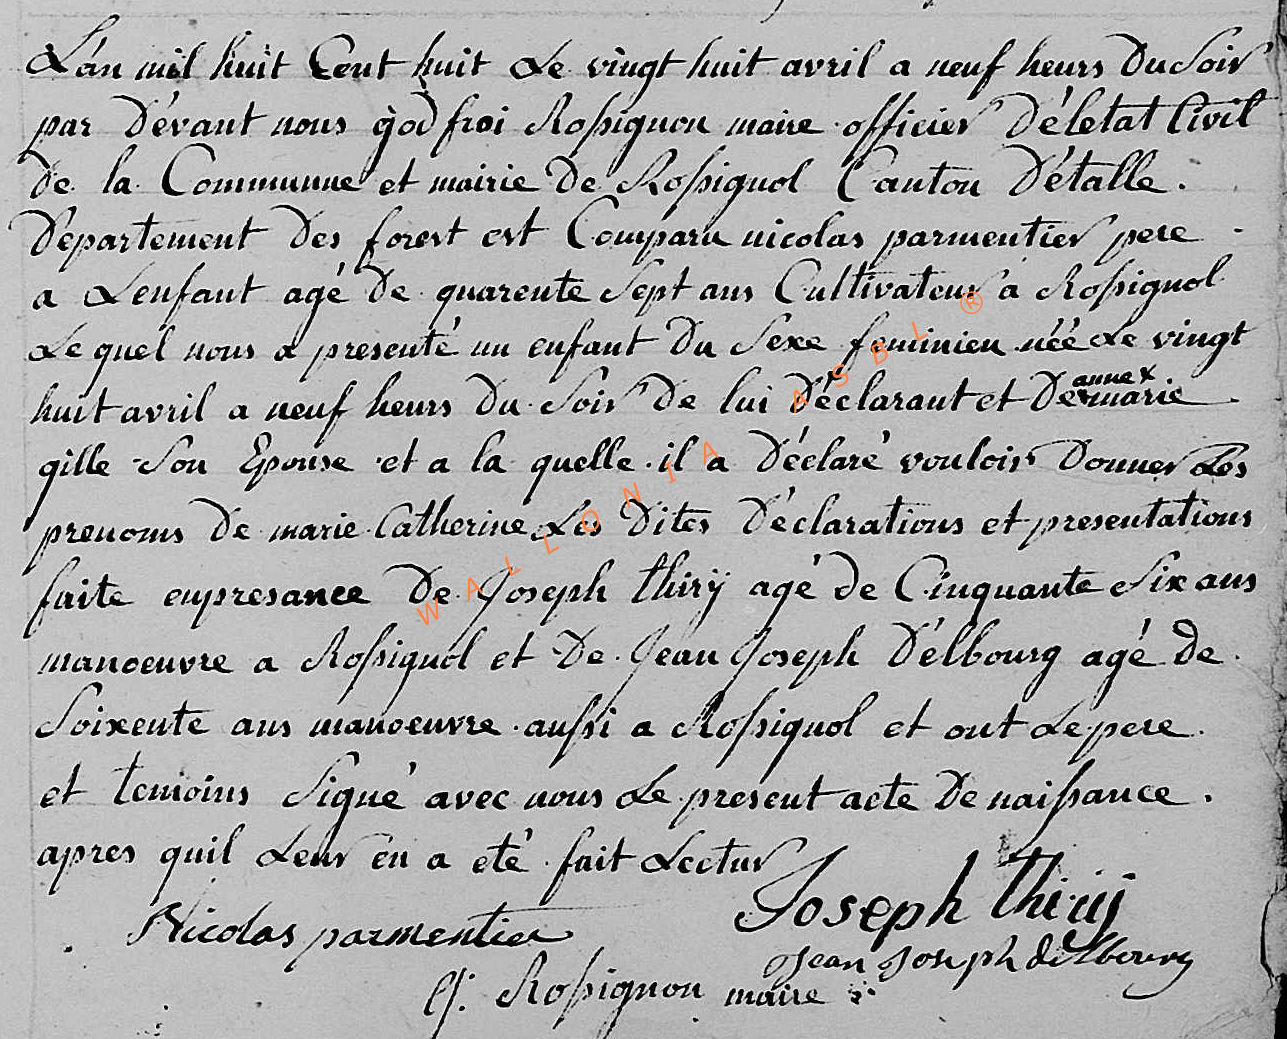 L'an mil huit Cent huit Le vingt huit avril a neuf heurs Du Soir
par Dévant nous godfroi Rossignon maire officier Déletat Civil
De la Communne et mairie De Rossignol Canton Détalle.
Département Des forest est Comparu nicolas parmentier pere
a Lenfant agé De quarente Sept ans Cultivateur a Rossignol
Le quel nous a presenté un enfant Du Sexe feminien néé Le vingt
huit avril a neuf heurs Du Soir De lui Déclarant et De anne marie
gille Son Epouse et a la quelle il a Déclaré vouloir Donner Les
prenoms De marie Catherine Les Dites Déclarations et presentations
faite enpresance De Joseph thirÿ agé de Cinquante Six ans
manoeuvre a Rossignol et De Jean Joseph Délbourg agé De
Soixente ans manoeuvre aussi a Rossignol et ont Le pere
et temoins Signé avec nous Le present acte De naissance.
apres quil Leur en a eté fait Lectur
Joseph thirÿ
Nicolas parmentier
Jean Joseph delbourg
G. Rossignon maire
WALLONIA ASBL ®